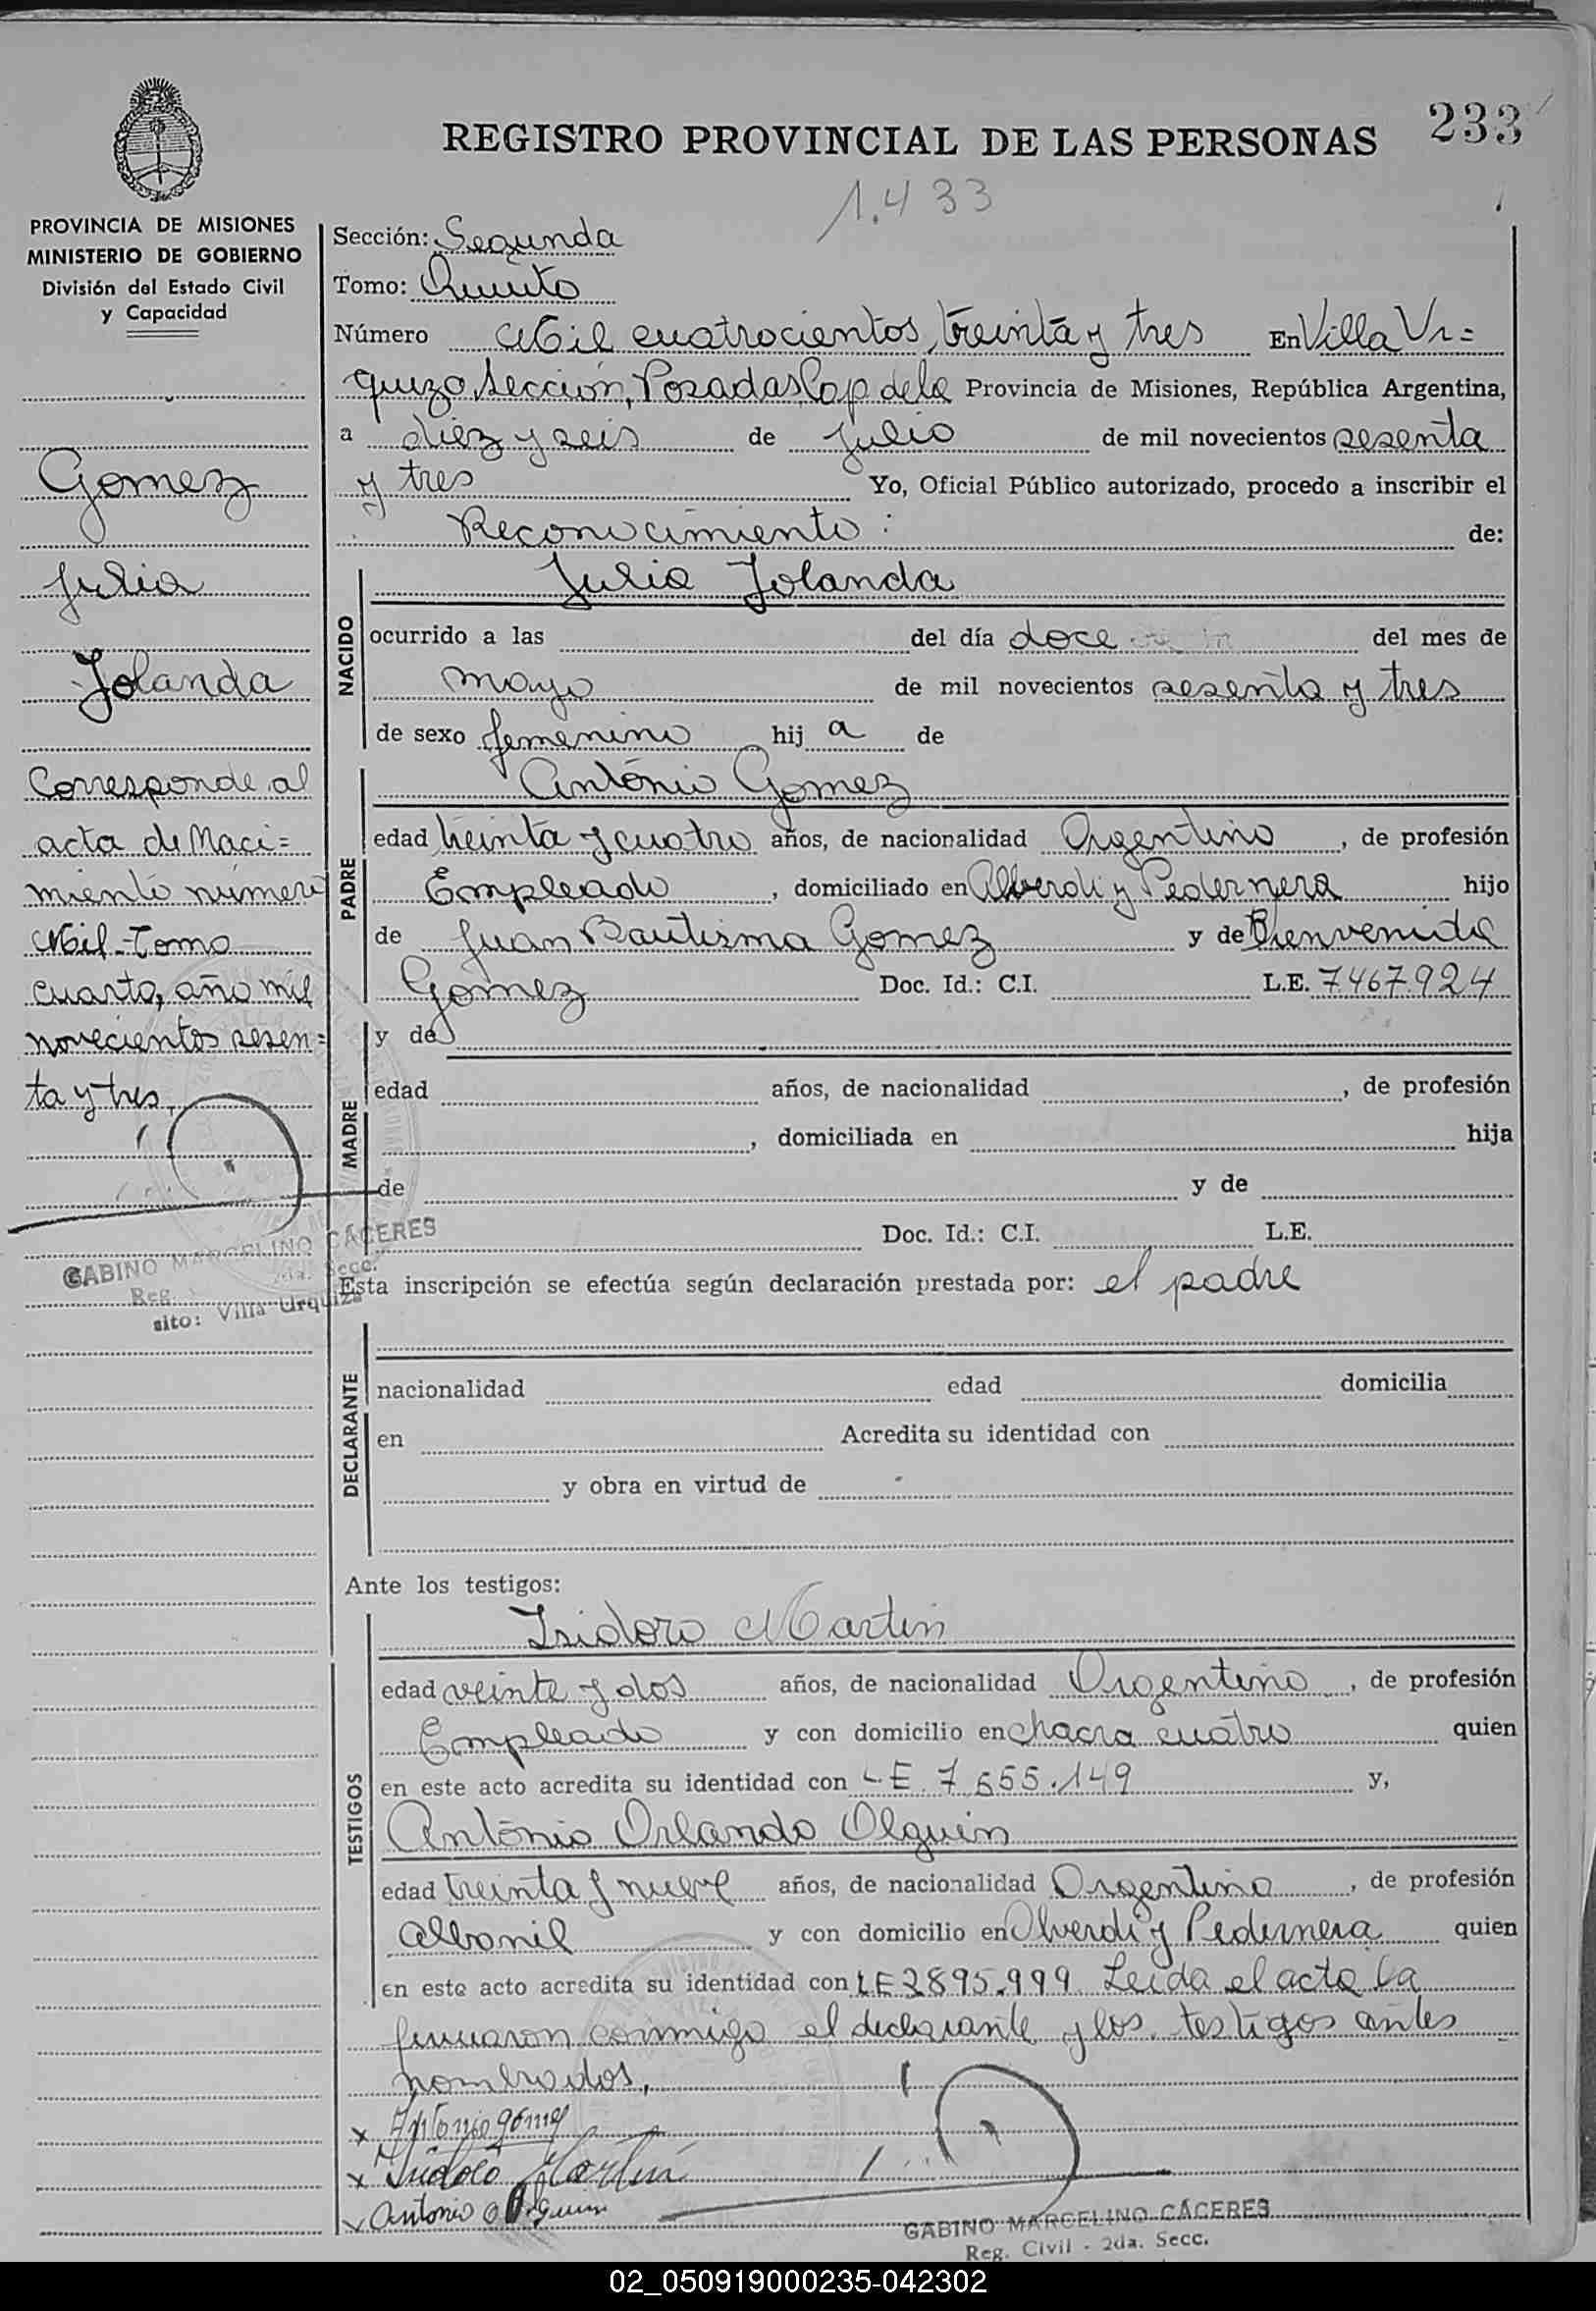 233
REGISTRO PROVINCIAL DE LAS PERSONAS
1.433
PROVINCIA DE MISIONES
MINISTERIO DE GOBIERNO
División del Estado Civil
y Capacidad
Gomez
Julia
Jolanda
Corresponde al
acta de Naci=
miento número
Mil-Tomo
cuarto, año mil
novecientos sesen=
ta y tres,
GABINO MARCELINO CÁCERES
Reg. 2da. Secc.
sito: Villa Urquiza
Sección: Segunda
Tomo: Quinto
Número Mil cuatrocientos, treinta y tres En Villa Ur=
quiza, Sección, Posadas, Cap de la Provincia de Misiones, República Argentina,
a diez y seis de julio de mil novecientos sesenta
y tres Yo, Oficial Público autorizado, procedo a inscribir el
Reconocimiento: de:
NACIDO
Julia Jolanda
ocurrido a las del día doce del mes de
mayo de mil novecientos sesenta y tres
de sexo femenino hija de
PADRE
Antonio Gomez
edad treinta y cuatro años, de nacionalidad Argentino, de profesión
Empleado, domiciliado en Alberdi y Pedernera hijo
de Juan Bautisma Gomez y de Bienvenida
Gomez Doc. Id.: C.I. L.E. 7.467.924
MADRE
y de
edad años, de nacionalidad , de profesión
, domiciliada en hija
de y de
Doc. Id.: C.I. L.E.
Esta inscripción se efectúa según declaración prestada por: el padre
DECLARANTE
nacionalidad edad domicilia
en Acredita su identidad con
y obra en virtud de
Ante los testigos:
TESTIGOS
Isidoro Martin
edad veinte y dos años, de nacionalidad Argentino, de profesión
Empleado y con domicilio en chacra cuatro quien
en este acto acredita su identidad con L-E. 7.555.149 y,
Antonio Orlando Olguin
edad treinta y nueve años, de nacionalidad Argentino, de profesión
Albanil y con domicilio en Alverdi y Pedernera quien
en este acto acredita su identidad con LE 2895.999 Leida el acta la
firmaron conmigo el declarante y los testigos antes
nombrados,
x Antonio gómez
x Isidoro Martin
Antonio O Olguin
GABINO MARCELINO CÁCERES
Reg. Civil - 2da. Secc.
02_050919000235-042302